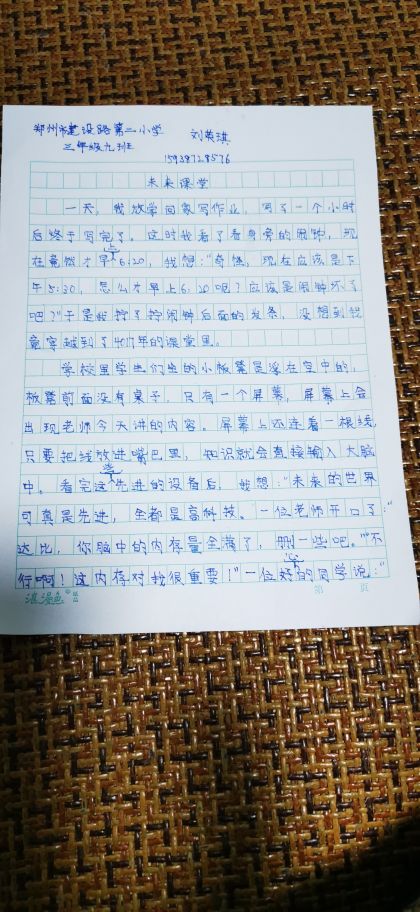 郑州市建设路第二小学 刘英琪
三年级九班
15938728576
未来课堂
一天，我放学回家写作业，写了一个小时
后终于写完了。这时我看了看身旁的闹钟，现
在竟然才早上6:20，我想："奇怪，现在应该是下
午5:30，怎么才早上6:20呢？应该是闹钟坏了
吧？"于是我拧了拧闹钟后面的发条，没想到我
竟穿越到了4017年的课堂里。
学校里学生们坐的小板凳是浮在空中的，
板凳前面没有桌子，只有一个屏幕，屏幕上会
出现老师今天讲的内容。屏幕上还连着一根线，
只要把线放进嘴巴里，知识就会直接输入大脑
中。看完这些先进的设备后，我想："未来的世界
可真是先进，全都是高科技。"一位老师开口了："
达比，你脑中的内存量全满了，删一些吧。""不
行啊！这内存对我很重要！"一位好心的同学说："
第 页